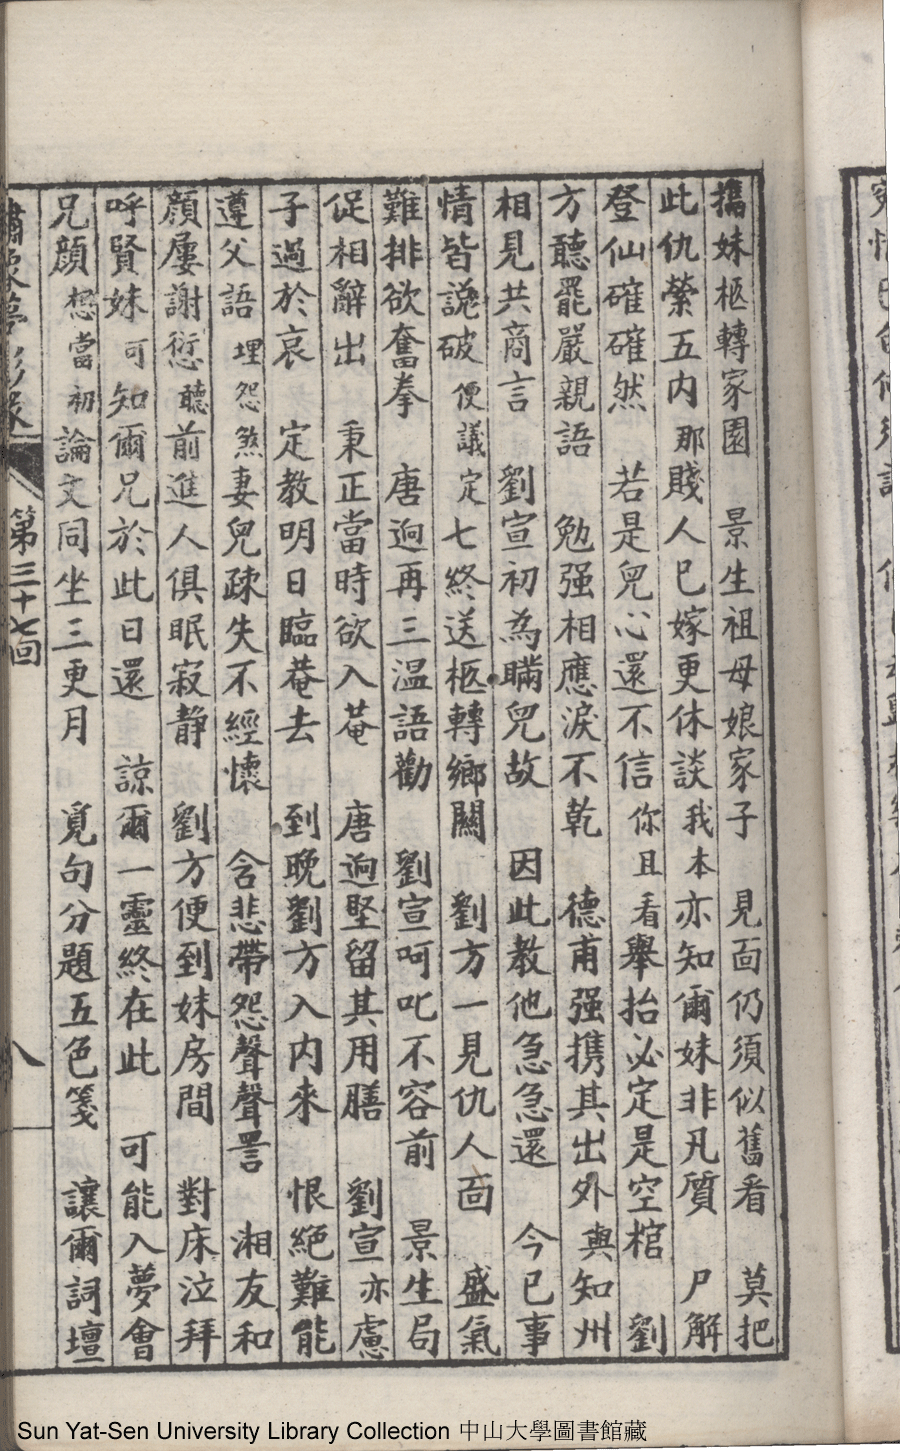 攜妹柩轉家園　景生祖母娘家子　見面仍須似舊看　莫把
此仇縈五内那賤人已嫁更休談我本亦知爾妹非凡質　尸解
登仙確確然　若是兒心還不信你且看舉抬必定是空棺　劉
方聽罷嚴親語　勉强相應淚不乾　德甫强携其出外與知州
相見共商言　劉宣初為瞞兒故　因此教他急急還　今已事
情皆說破便議定七終送柩轉鄉關　劉方一見仇人面　盛氣
難排欲奮拳　唐逈再三温語勸　劉宣呵叱不容前　景生局
促相辭出　秉正當時欲入菴　唐逈堅留其用膳　劉宣亦慮
子過於哀　定教明日臨菴去　到晚劉方入内來　恨絕難能
遵父語埋怨煞妻兒疎失不經懷　含悲帶怨聲聲詈　湘友和
顏屢謝愆聽前進人俱眠寂静　劉方便到妹房間　對床泣拜
呼賢妹可知爾兄於此日還　諒爾一靈終在此　可能入夢會
兄顏想當初論文同坐三更月　覓句分題五色箋　讓爾詞壇
繡像夢影緣　第三十七回　八
Sun Yat-Sen University Library Collection 中山大學圖書館藏